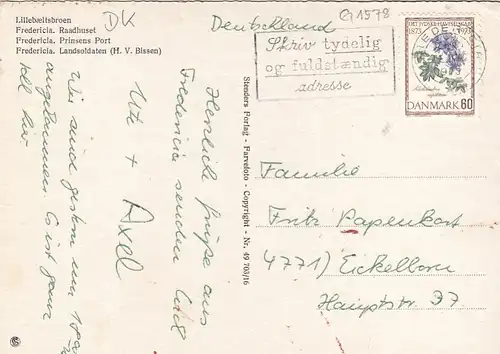 Lillebæltsbroen
Fredericia. Raadhuset
Fredericia. Prinsens Port
Fredericia. Landsoldaten (H. V. Bissen)
DK
Deutschland
G1578
Skriv tydelig
og fuldstændig
adresse
DET JYDSKE HAVESELSKAB
1873 1973
DANMARK 60
Herzliche Grüße aus
Fredericia senden Euch
Ute + Axel
Wir sind gestern um
angekommen. Es ist ganz
toll hier
Stenders Forlag - Farvefoto - Copyright - Nr. 49 703/16
Familie
Fritz Papenkort
4771) Eickelborn
Hauptstr. 37